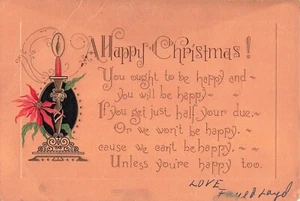 A Happy Christmas!
You ought to be happy and -
you will be happy -
If you get just half your due: -
Or we won't be happy, -
cause we can't be happy, - -
Unless you're happy too.
LOVE